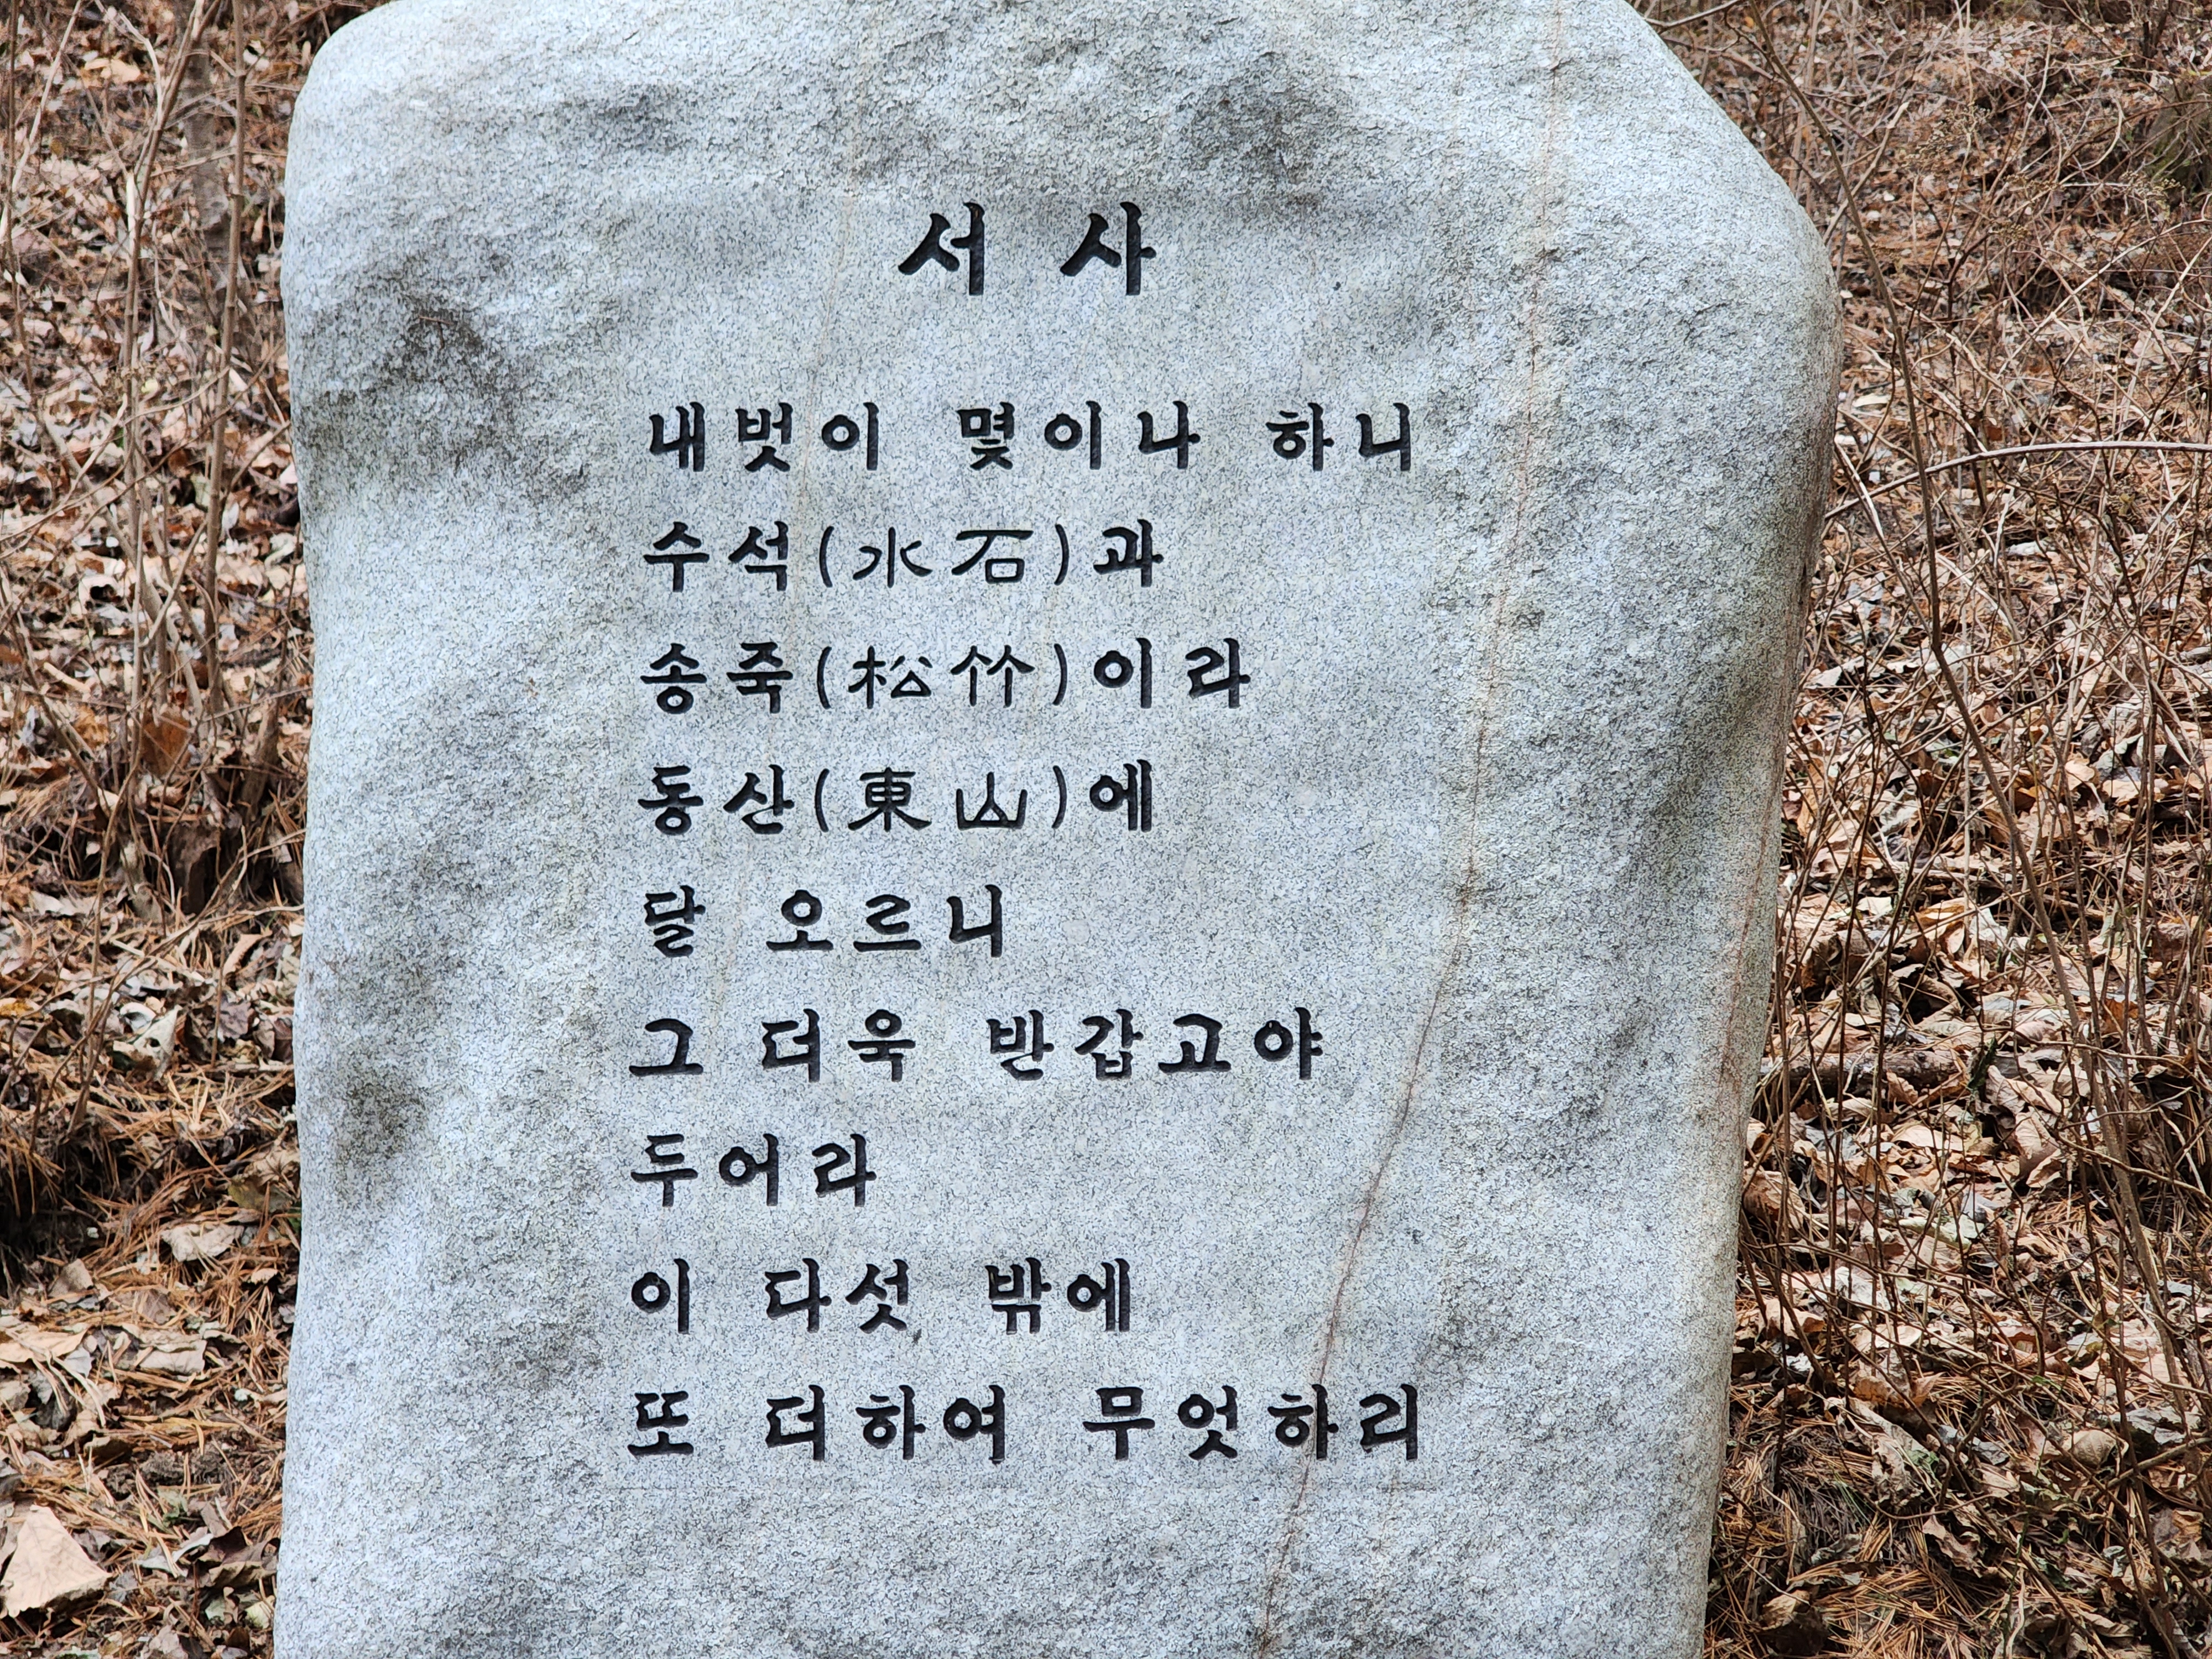 서 사
내벗이 몇이나 하니
수석(水石)과
송죽(松竹)이라
동산(東山)에
달 오르니
그 더욱 반갑고야
두어라
이 다섯 밖에
또 더하여 무엇하리